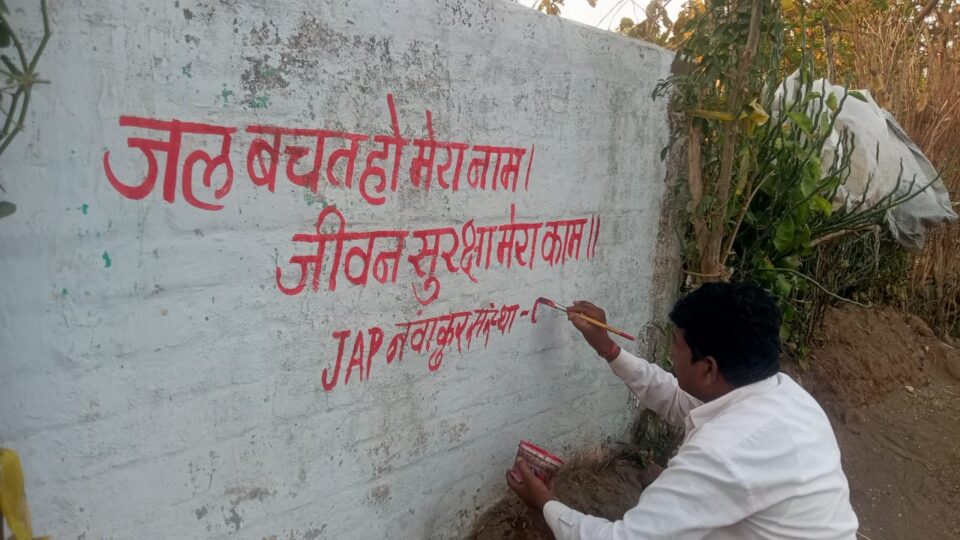 जल बचत हो मेरा नाम।
जीवन सुरक्षा मेरा काम॥
JAP नवांकुर संस्था - C